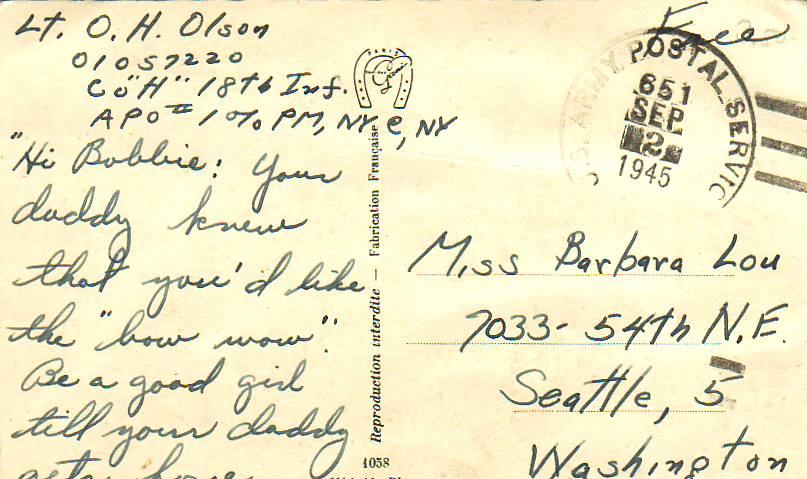 Lt. O. H. Olson
01057220
Co "H" 18th Inf.
APO # 1 % PM, NY C, NY
"Hi Bobbie: Your
daddy knew
that you'd like
the "bow wow".
Be a good girl
till your daddy
gets home
PARIS
Reproduction interdite — Fabrication Française
1038
Free
U.S. ARMY POSTAL SERVIC
651
SEP
2
1945
Miss Barbara Lou
7033- 54th N.E.
Seattle, 5
Washington